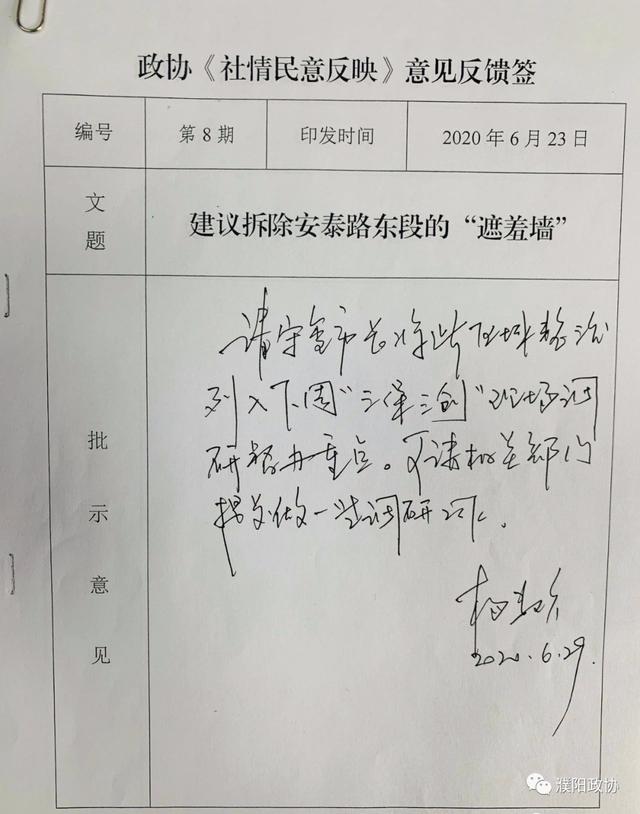 政协《社情民意反映》意见反馈签
编号 第8期 印发时间 2020年6月23日
文题 建议拆除安泰路东段的“遮羞墙”
批示意见
请守金市长将此区域整治
列入下周“三保三创”现场调
研督办重点。可请相关部门
提前做一些调研
2020.6.29.
濮阳政协